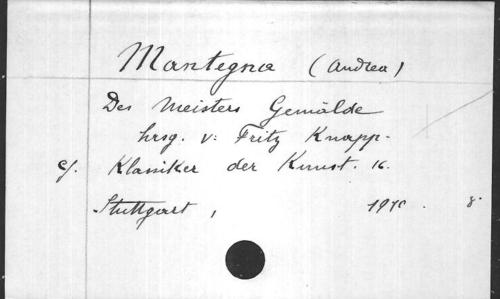 Mantegna (Andrea)
Des Meisters Gemälde
hrsg. v: Fritz Knapp.
cf. Klassiker der Kunst. 16.
Stuttgart, 1910. 8.